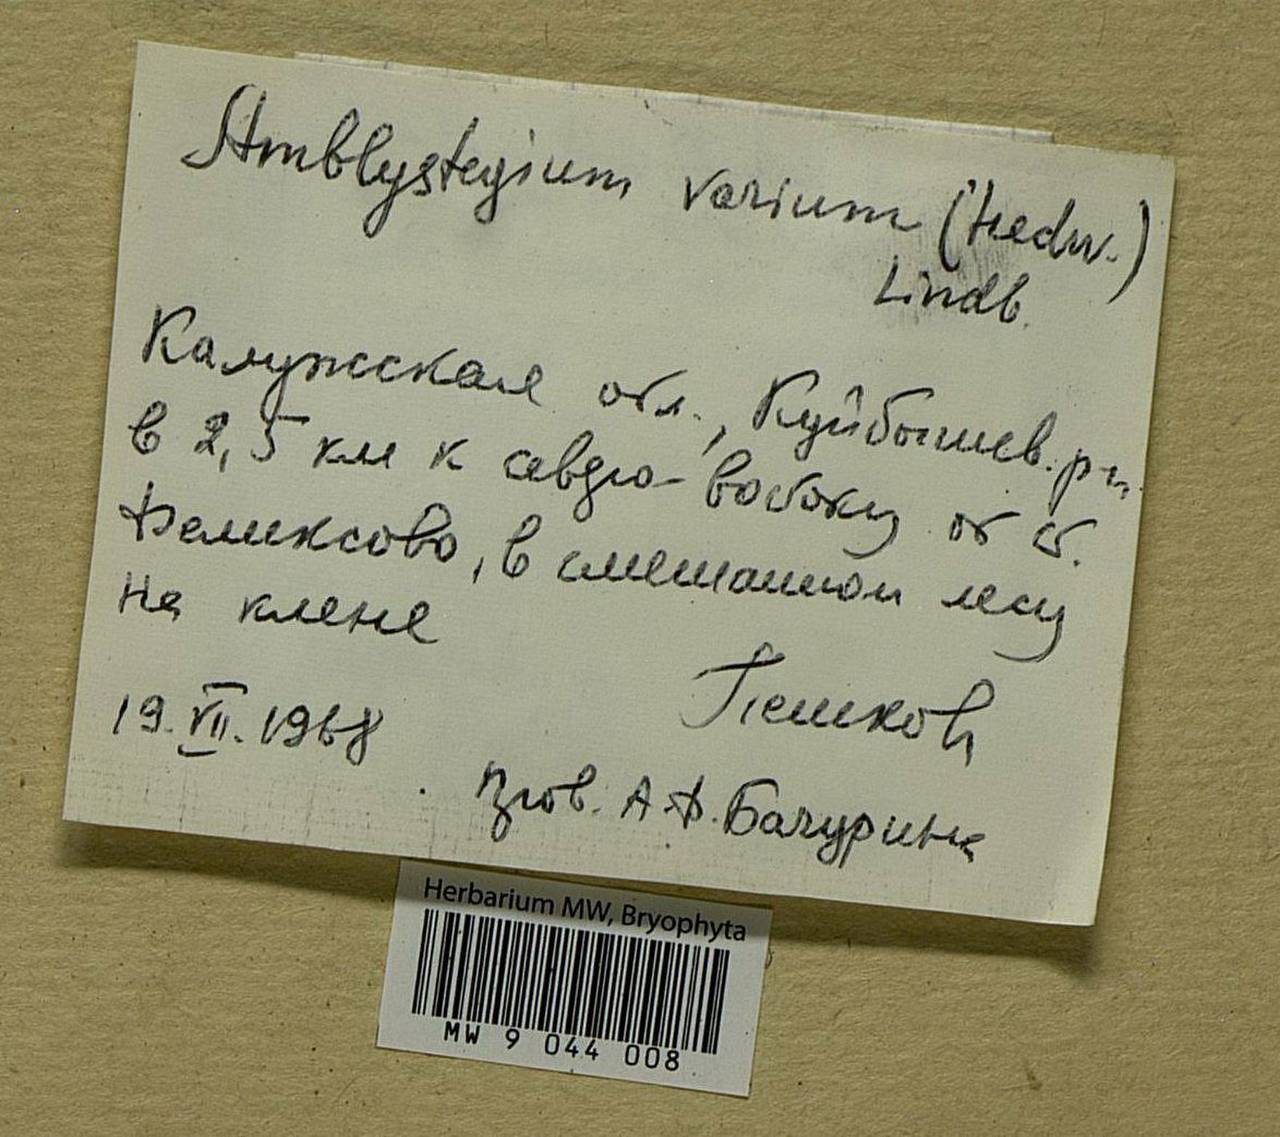 Amblystegium varium (Hedw.)
Lindb.
Калужская обл., Куйбышев. р-н.
в 2,5 км к северо-востоку от ст.
Феликсово, в смешанном лесу
На клене
Пешков
19.VII.1968
пров. А.Ф. Бачурина
Herbarium MW, Bryophyta
MW 9 044 008